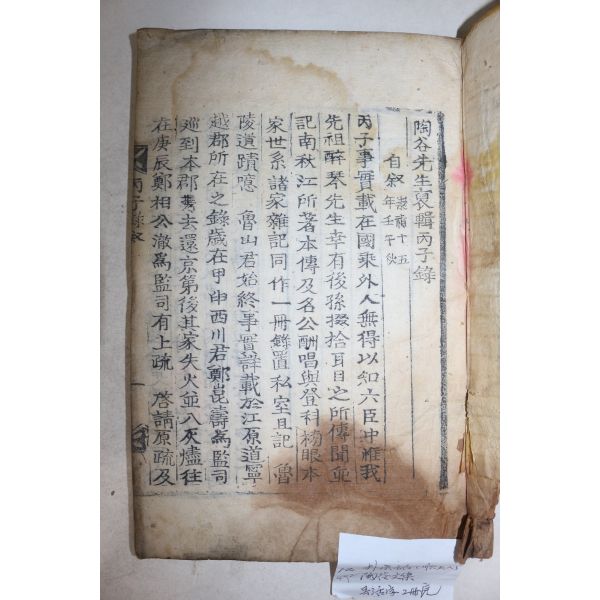 陶谷先生裒輯丙子錄
自敘 崇禎十五年壬午秋
丙子事實載在國乘外人無得以知六臣中惟我
先祖醉琴先生幸有後孫掇拾耳目之所傳聞並
記南秋江所著本傳及名公酬唱與登科榜眼本
家世系諸家雜記同作一冊錄置私室且記 魯
陵遺蹟噫 魯山君始終事實詳載於江原道寧
越郡所在之錄歲在甲申西川君鄭崑壽爲監司
巡到本郡 去還京第後其家失火並入灰燼往
在庚辰鄭相公澈爲監司有上疏 啓請原疏及
丙子錄敘
一